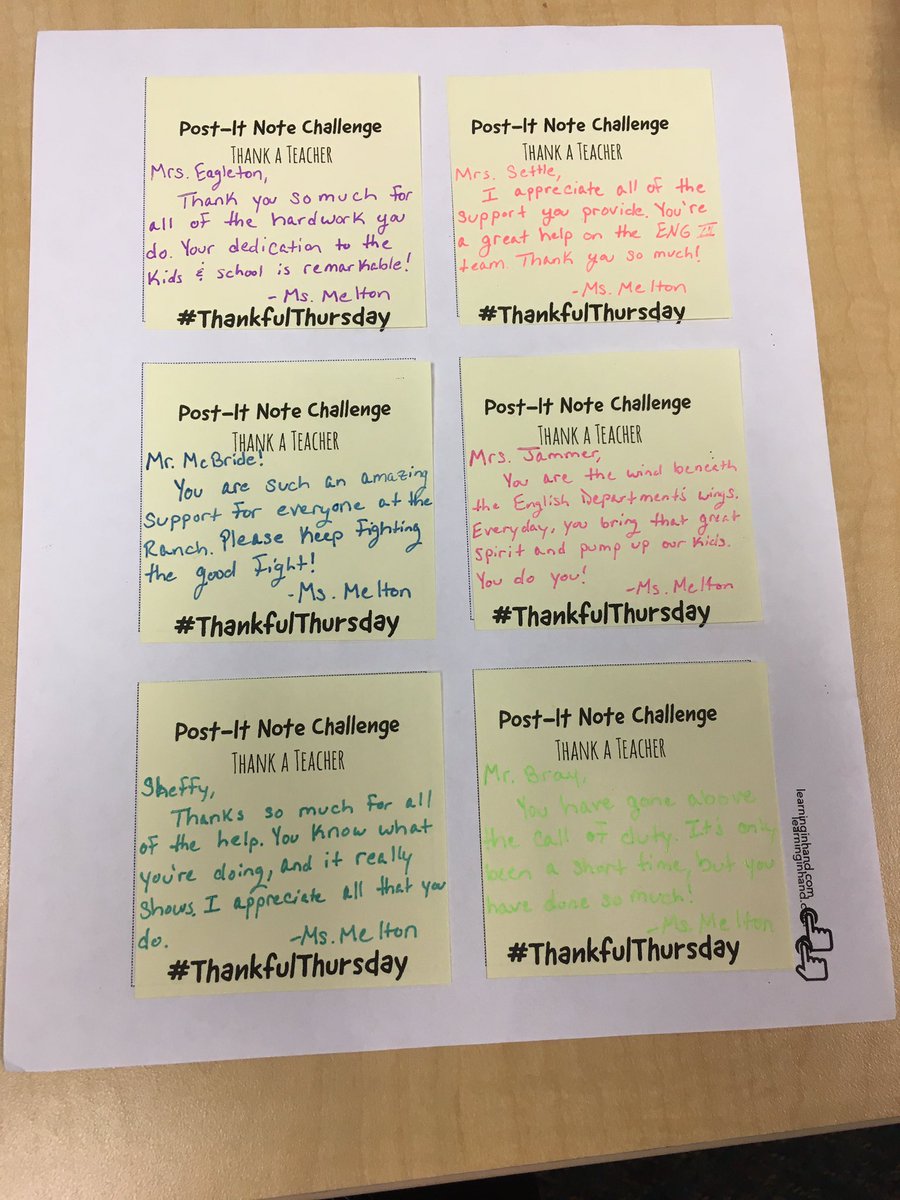 Post-It Note Challenge
THANK A TEACHER
Mrs. Eagleton,
Thank you so much for
all of the hardwork you
do. Your dedication to the
Kids & school is remarkable!
-Ms. Melton
#ThankfulThursday
Post-It Note Challenge
THANK A TEACHER
Mrs. Settle,
I appreciate all of the
support you provide. You're
a great help on the ENG III
team. Thank you so much!
-Ms. Melton
#ThankfulThursday
Post-It Note Challenge
THANK A TEACHER
Mr. McBride!
You are such an amazing
support for everyone at the
Ranch. Please keep fighting
the good fight!
-Ms. Melton
#ThankfulThursday
Post-It Note Challenge
THANK A TEACHER
Mrs. Jammer,
You are the wind beneath
the English Department's wings.
Everyday, you bring that great
spirit and pump up our kids.
You do you!
-Ms. Melton
#ThankfulThursday
Post-It Note Challenge
THANK A TEACHER
Sheffy,
Thanks so much for all
of the help. You know what
you're doing, and it really
shows. I appreciate all that you
do.
-Ms. Melton
#ThankfulThursday
Post-It Note Challenge
THANK A TEACHER
Mr. Bray,
You have gone above
the call of duty. It's only
been a short time, but you
have done so much!
-Ms. Melton
#ThankfulThursday
learninginhand.com
learninginhand.c